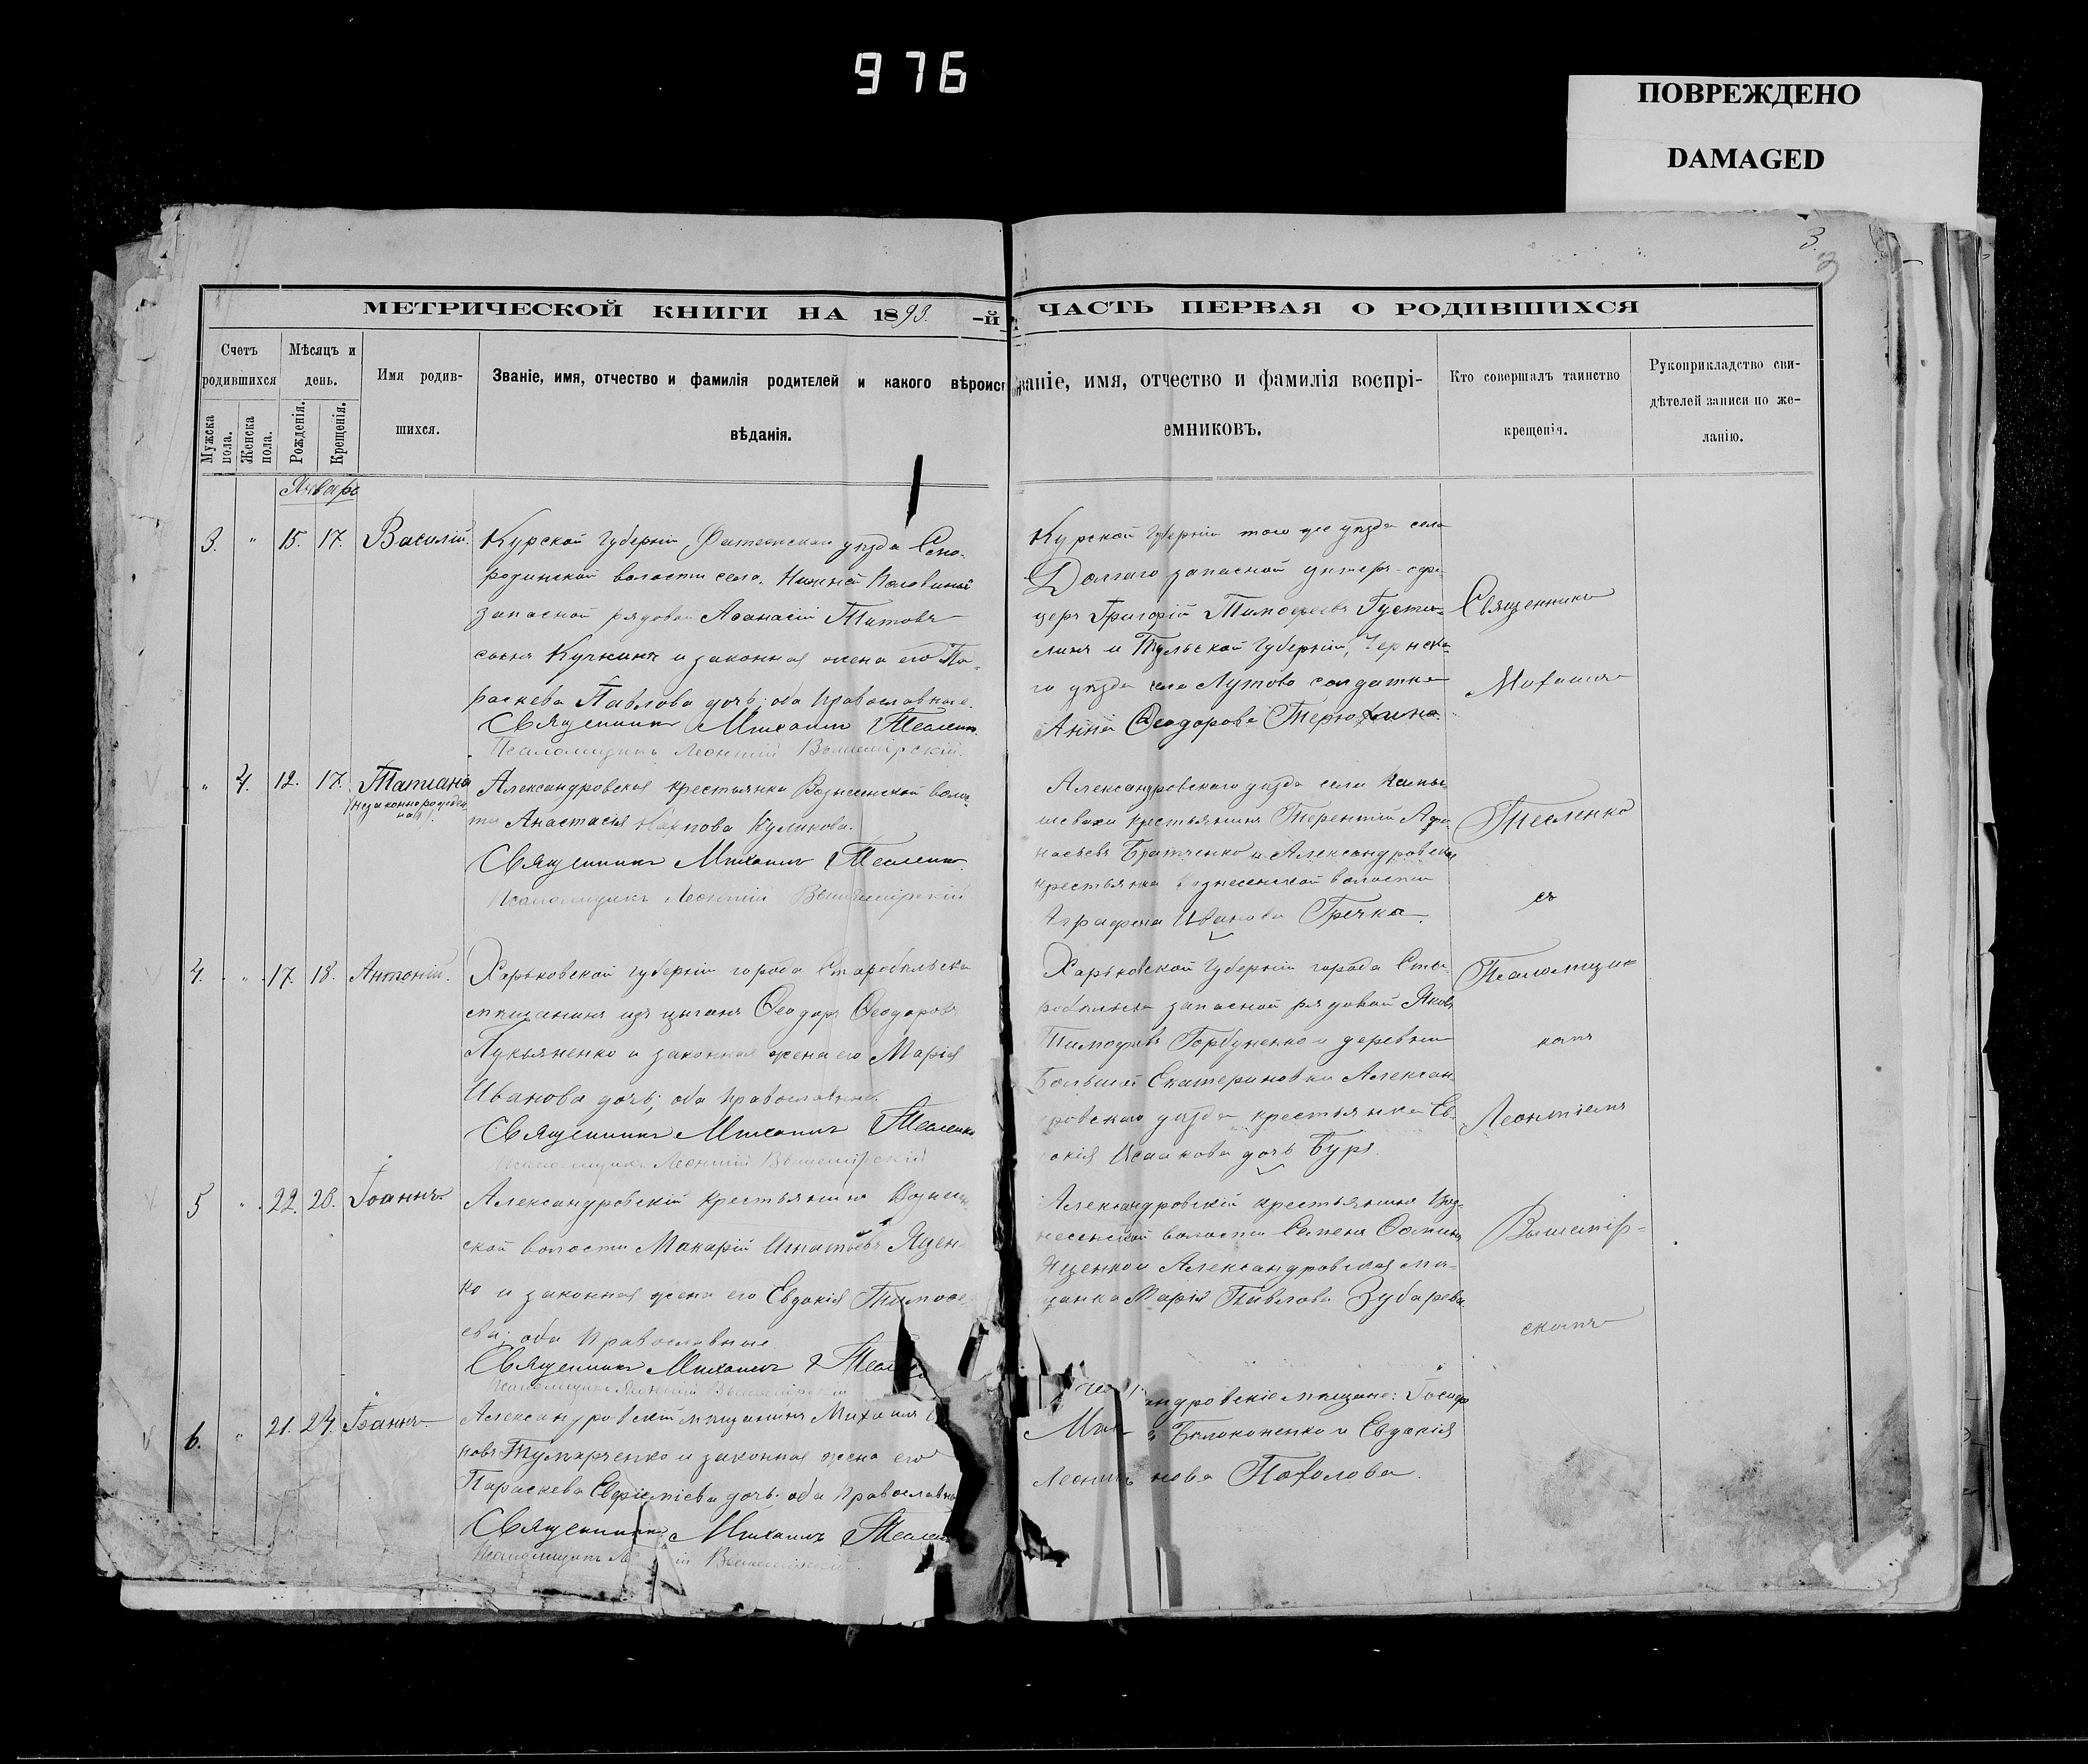 976
ПОВРЕЖДЕНО
DAMAGED
3.
МЕТРИЧЕСКОЙ КНИГИ НА 1893. -й
ЧАСТЬ ПЕРВАЯ О РОДИВШИХСЯ
Счетъ родившихся
Мужска пола.
Женска пола.
Мѣсяцъ и день.
Рожденія.
Крещенія.
Имя родив-
шихся.
Званіе, имя, отчество и фамилія родителей и какого вѣроисп
вѣданія.
Званіе, имя, отчество и фамилія воспрі-
емниковъ.
Кто совершалъ таинство
крещенія.
Рукоприкладство сви-
дѣтелей записи по же-
ланію.
Январь
3. " 15. 17. Василій.
Курской губерніи Фатежскаго уѣзда
родинской волости села
запасной рядовой Аѳанасій Титовъ
сынъ Кучкинъ и законная жена его Па-
раскева Павлова дочь; оба православные.
Священникъ Михаилъ Тесленко
Псаломщикъ Леонтій Вышемірскій.
Курской губерніи того же уѣзда села
Долгаго запасной унтеръ-офи-
церъ Григорій Тимоѳеевъ
и Тульской губерніи, Чернска-
го уѣзда села Лутово солдатка
Анна Ѳеодорова Терюхина.
" 4. 12. 17. Татіана
(незаконнорожден
ная).
Александровская крестьянка Вознесенской волос-
ти Анастасія Карпова Куликова.
Священникъ Михаилъ Тесленко
Псаломщикъ Леонтій Вышемірскій
Александровскаго уѣзда села
крестьянинъ Терентій Аѳа-
насьевъ Братченко и Александровская
крестьянка Вознесенской волости
Аграфена Иванова Гречка.
4. " 17. 18. Антоній.
Харьковской губерніи города Старобѣльска
мѣщанинъ изъ цыганъ Ѳеодоръ Ѳеодоровъ
Лукьяненко и законная жена его Марія
Иванова дочь; оба православные.
Священникъ Михаилъ Тесленко
Псаломщикъ Леонтій Вышемірскій
Харьковской губерніи города Ста-
робѣльска запасной рядовой Яковъ
Тимоѳеевъ Горбуненко и деревни
Большой Екатериновки Алексан-
ровскаго уѣзда крестьянка Ев-
докія Исаакова дочь Буря.
5 " 22. 28. Іоаннъ
Александровскій крестьянинъ Вознесен-
ской волости Макарій Игнатьевъ Яцен-
ко и законная жена его Евдокія Тимоѳе-
ева; оба православные
Священникъ Михаилъ Тесле
Псаломщикъ Леонтій Вышемірскій
Александровскій крестьянинъ Воз-
несенской волости Семенъ
Яценко и Александровская мѣ-
щанка Марія Павлова Зубарева.
6. " 21. 24. Іоаннъ
Александровскій мѣщанинъ Михаилъ
новъ Тумарченко и законная жена его
Параскева Евфиміева дочь; оба православн
Священникъ Михаилъ Тесленко
Псаломщикъ Ле ій Вышемірскій
андровскіе мѣщане: Іосифъ
Бѣлоконенко и Евдокія
нова Похолова.
Священникъ
Михаилъ
Тесленко
съ
Псаломщик
комъ
Леонтіемъ
Вышемір-
скимъ